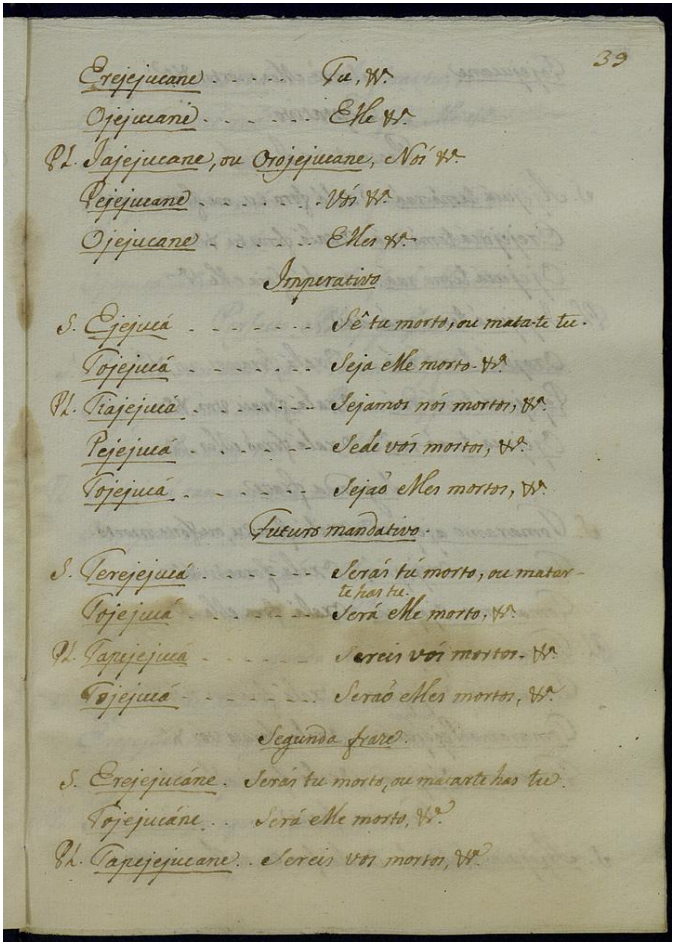 39
Erejejucane . . . . . Tu, &ª.
Ojejucane . . . . . . Elle &ª.
Pl. Jajejucane, ou Orojejucane, Nós &ª.
Pejejucane . . . . . . . Vós &ª.
Ojejucane . . . . . . Elles &ª.
Imperativo
S. Ejejucá . . . . . . . Sê tu morto, ou mata-te tu.
Tojejucá . . . . . . . Seja elle morto. &ª.
Pl. Tiajejucá . . . . . . . Sejamos nós mortos, &ª.
Pejejucá . . . . . . . Sede vós mortos, &ª.
Tojejucá . . . . . . . Sejaõ elles mortos, &ª.
Futuro mandativo.
S. Terejejucá . . . . . . Serás tu morto, ou matar-
te has tu.
Tojejucá . . . . . . . Será elle morto, &ª.
Pl. Tapejejucá . . . . . . Sereis vós mortos. &ª.
Tojejucá . . . . . . . Seraõ elles mortos, &ª.
Segunda fraze.
S. Erejejucáne . Seras tu morto, ou matarte has tu.
Tojejucáne . . Será elle morto, &ª.
Pl. Tapejejucane . . Sereis vos mortos, &ª.